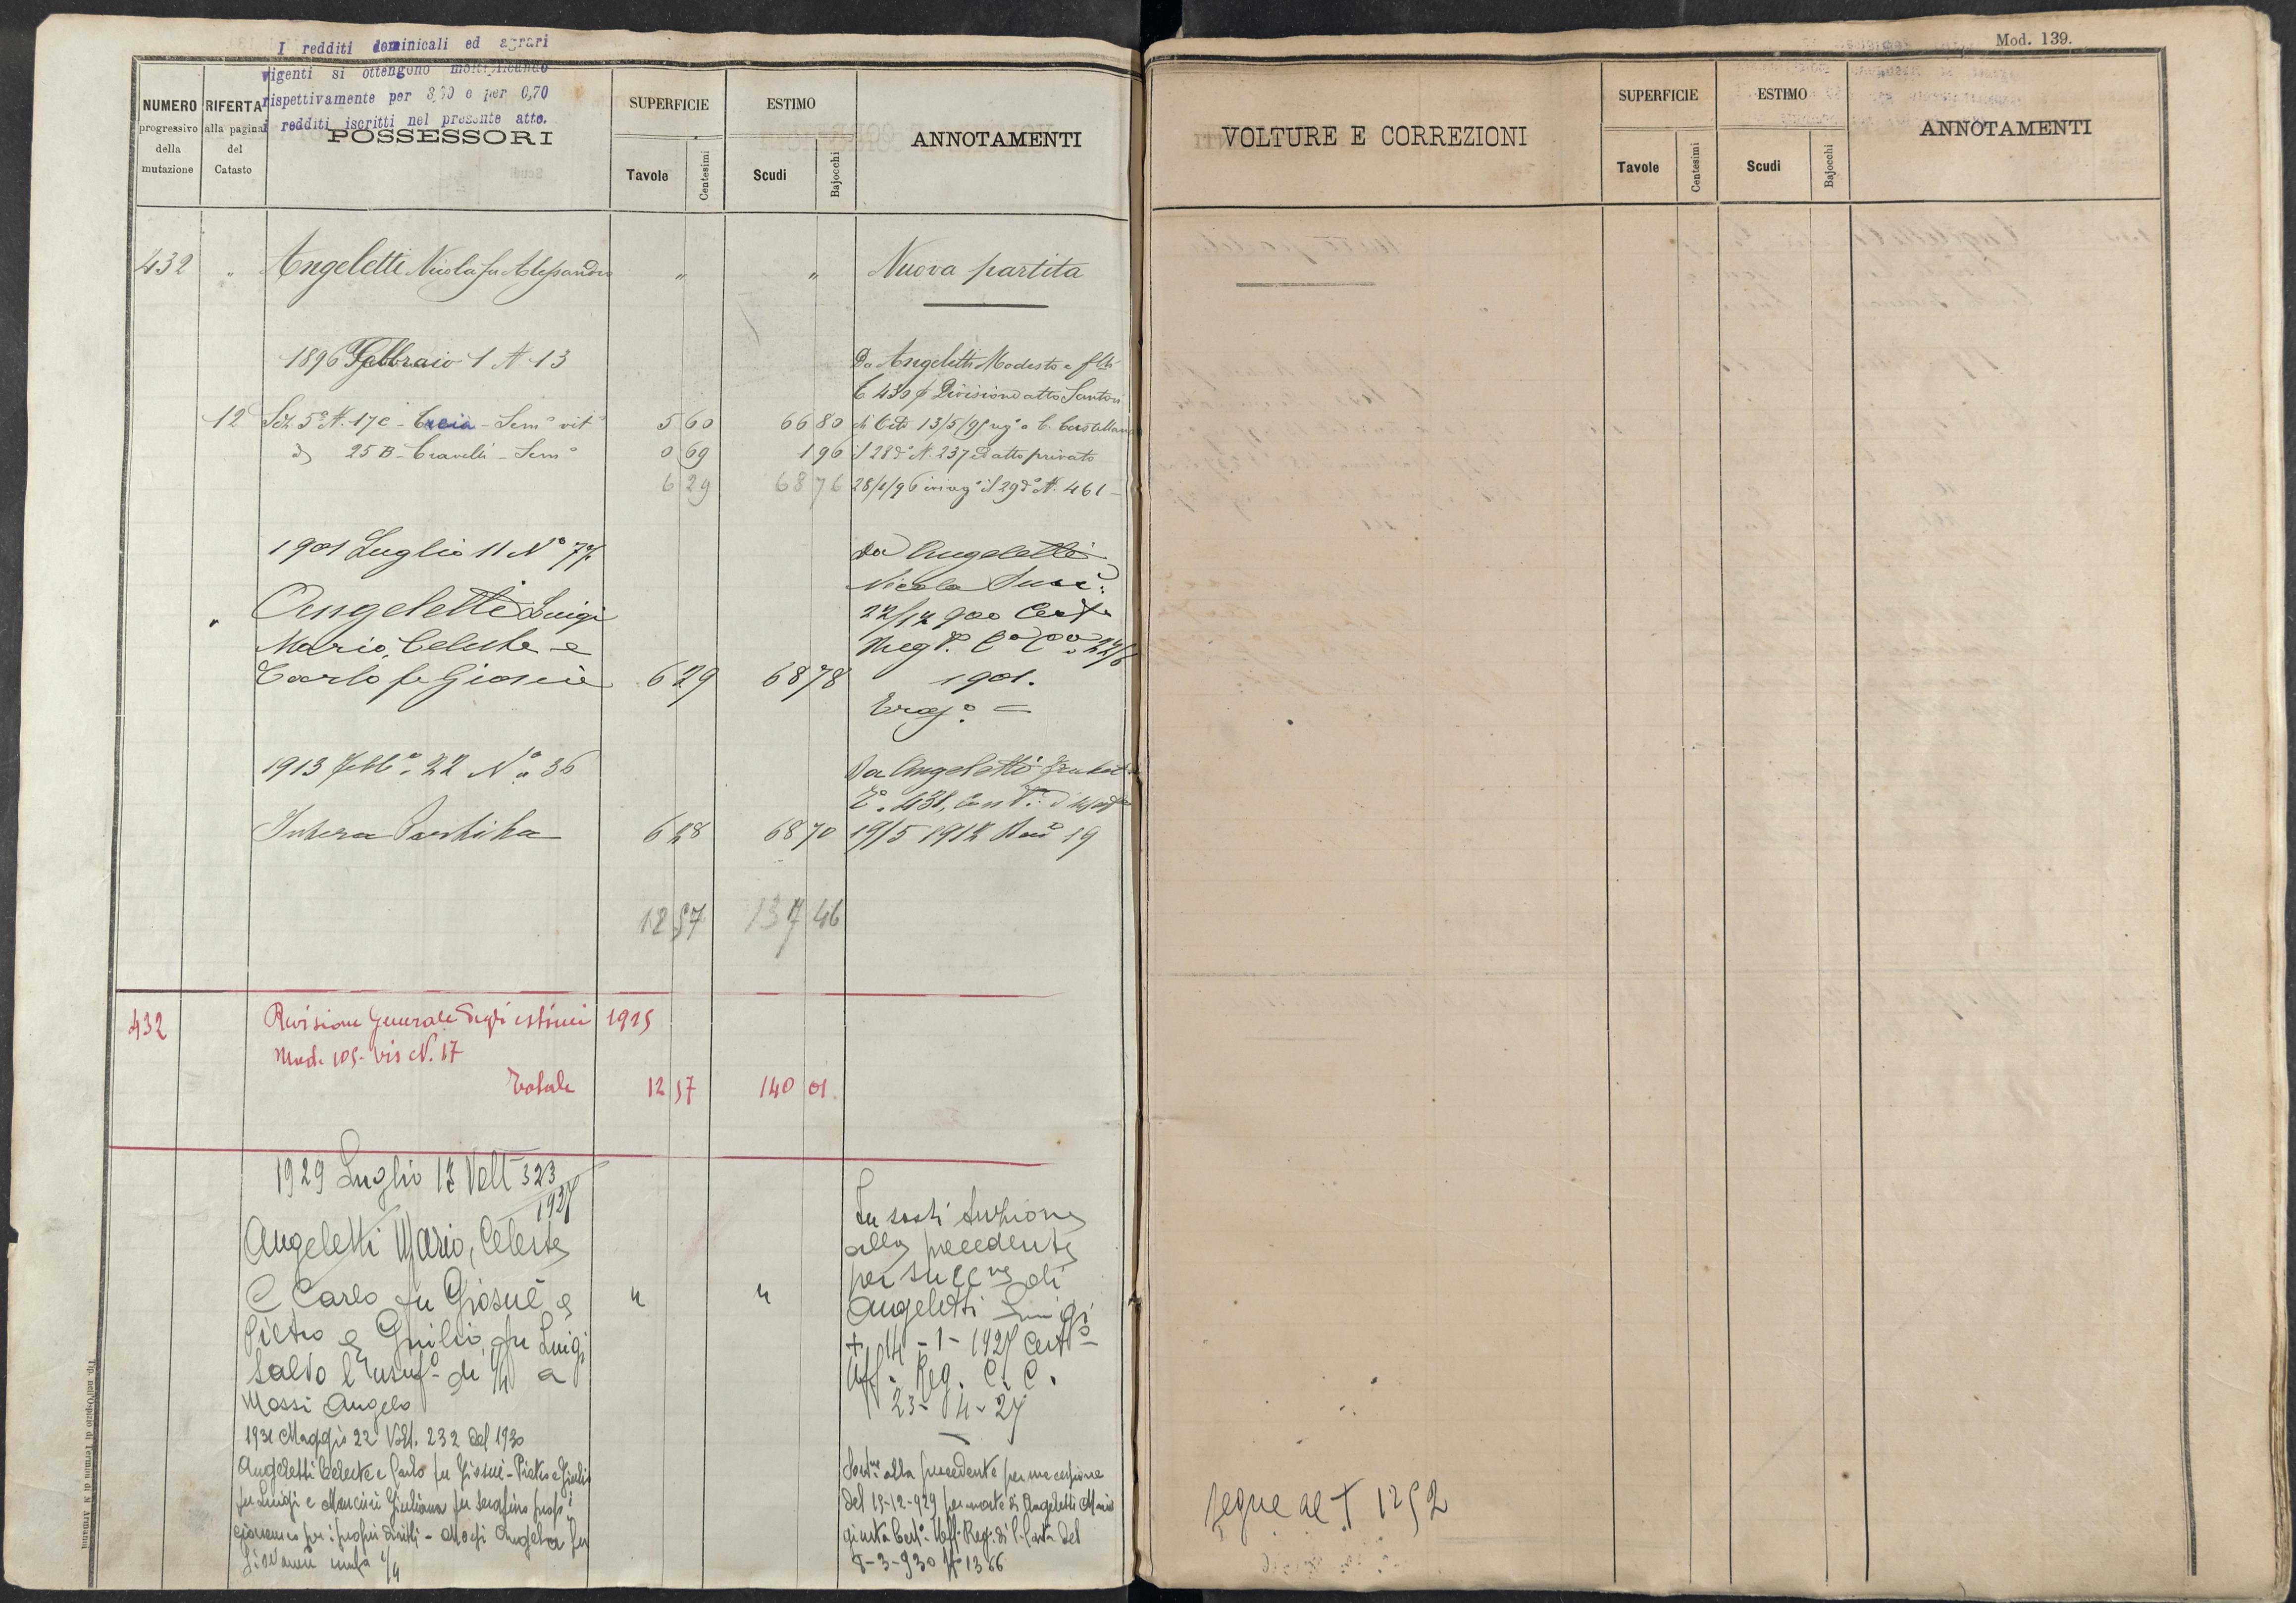 I redditi dominicali ed agrari
vigenti si ottengono moltiplicando
rispettivamente per 3,20 e per 0,70
i redditi iscritti nel presente atto.
NUMERO
progressivo
della
mutazione
RIFERTA
alla pagina
del
Catasto
POSSESSORI
SUPERFICIE
Tavole
Centesimi
ESTIMO
Scudi
Bajocchi
ANNOTAMENTI
432 " Angeletti Nicola fu Alessandro " " Nuova partita
1896 Febbraio 1 N 13
Da Angeletti Modesto e flli
C 430 p Divisione atto Santori
12 Sez 5ª N. 17 C - Creia - Semo vito 5 60 66 80 di Cito 13/5/95 rego a C. Castellana
d 25 B - Cravelli - Semo 0 69 1 96 il 28 do N. 237 ed atto privato
6 29 68 76 28/1/96 il 29 do N. 461
1901 Luglio 11 No 77
Da Angeletti
Nicola Succ:
22/12 900 Certo
Reg
1901.
" Angeletti Luigi
Mario, Celeste e
Carlo fu Giosuè 6 29 68 78
1913 Febbo 22 No 36
Da Angeletti
Intera Partita 6 28 68 70 19/5 1912 19
12 57 137 46
432 Revisione Generale degli estimi 1925
Mod. 105-bis N. 17
Totale 12 57 140 01
1929 Luglio 13 Volt 323
1927
Angeletti Mario, Celeste
e Carlo fu Giosuè e " "
Pietro e Giulio fu Luigi
salvo l'usufo di 1/4 a
Mossi Angela
In sostituzione
alla precedente
per succne di
Angeletti Luigi
+ 14-1-1927 Certo
Uff. Reg. C. C.
23-4-27
1931 Maggio 22 Volt. 232 del 1930
Angeletti Celeste e Carlo fu Giosuè - Pietro e Giulio
fu Luigi e Mancini Giuliana fu Serafino
per i propri diritti - Mossi Angela fu
Giovanni 1/4
Sostne alla precedente per successione
del 15-12-929 per morte di Angeletti Mario
giusta Certo Uff. Reg. di C. Casta del
8-3-930 No 1366
Tip. nell'Ospizio di Termini di N. Armanni
Mod. 139.
VOLTURE E CORREZIONI
SUPERFICIE
Tavole
Centesimi
ESTIMO
Scudi
Bajocchi
ANNOTAMENTI
segue al T 1252